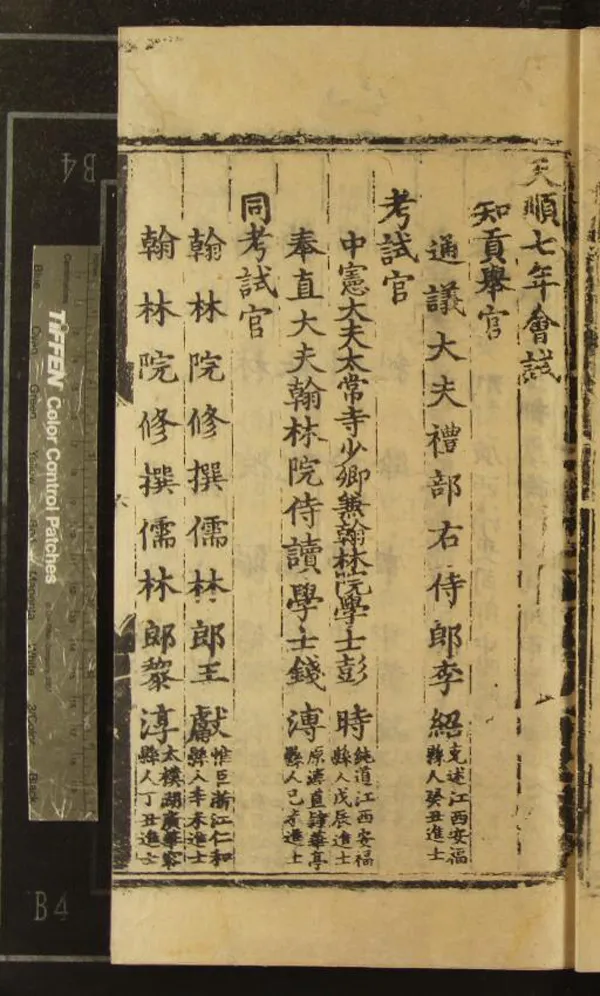 天順七年會試
知貢舉官
通議大夫禮部右侍郎李紹 克述江西安福縣人癸丑進士
考試官
中憲大夫太常寺少卿兼翰林院學士彭時 純道江西安福縣人戊辰進士
奉直大夫翰林院侍讀學士錢溥 原溥直隸華亭縣人己未進士
同考試官
翰林院修撰儒林郎王獻 惟臣浙江仁和縣人辛未進士
翰林院修撰儒林郎黎淳 太樸湖廣華容縣人丁丑進士
B4
TIFFEN Color Control Patches
Blue
Green
White
3/Color
Black
B4